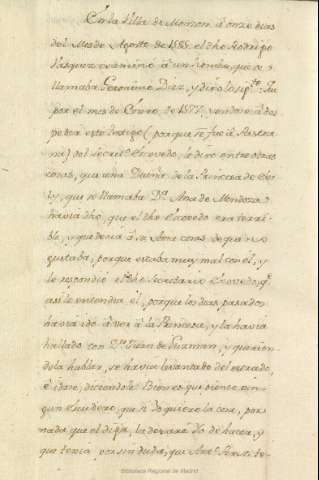 En la Villa de Monzon, á onze dias
del Mes de Agosto de 1585. el dho Rodrigo
Vazquez examinó á un hombre, que se
llamaba Geronimo Diaz, y dixo
por el mes de Enero, de 1577, vendome á des-
pedir este testigo (porque se fue á
) del Secret.º Escovedo, le dixo entre otras
cosas, que una Dueña de la Princesa de Evo-
ly, que se llamaba D.ª Ana de Mendoza
havia dho, que el dho Escovedo era terri-
ble, y que decia á su Ama cosas de que no
gustaba, porque estaba muy mal con él, y
le respondió el dho Secretario Escovedo, q.e
asi lo entendia él, porque los dias pasados
havia ido á ver á la Princesa, y la havia
hallado con D.n Juan de Guzman, y querien-
dola hablar, se havia levantado del estrado,
é idose, diciendole: Bien se que siente nin-
gun Escudero, que le quiere la cera, por
nada que el diga, la dexaré de hacer, y
que tenia por sin duda, que Ant.º Perez te-
Biblioteca Regional de Madrid